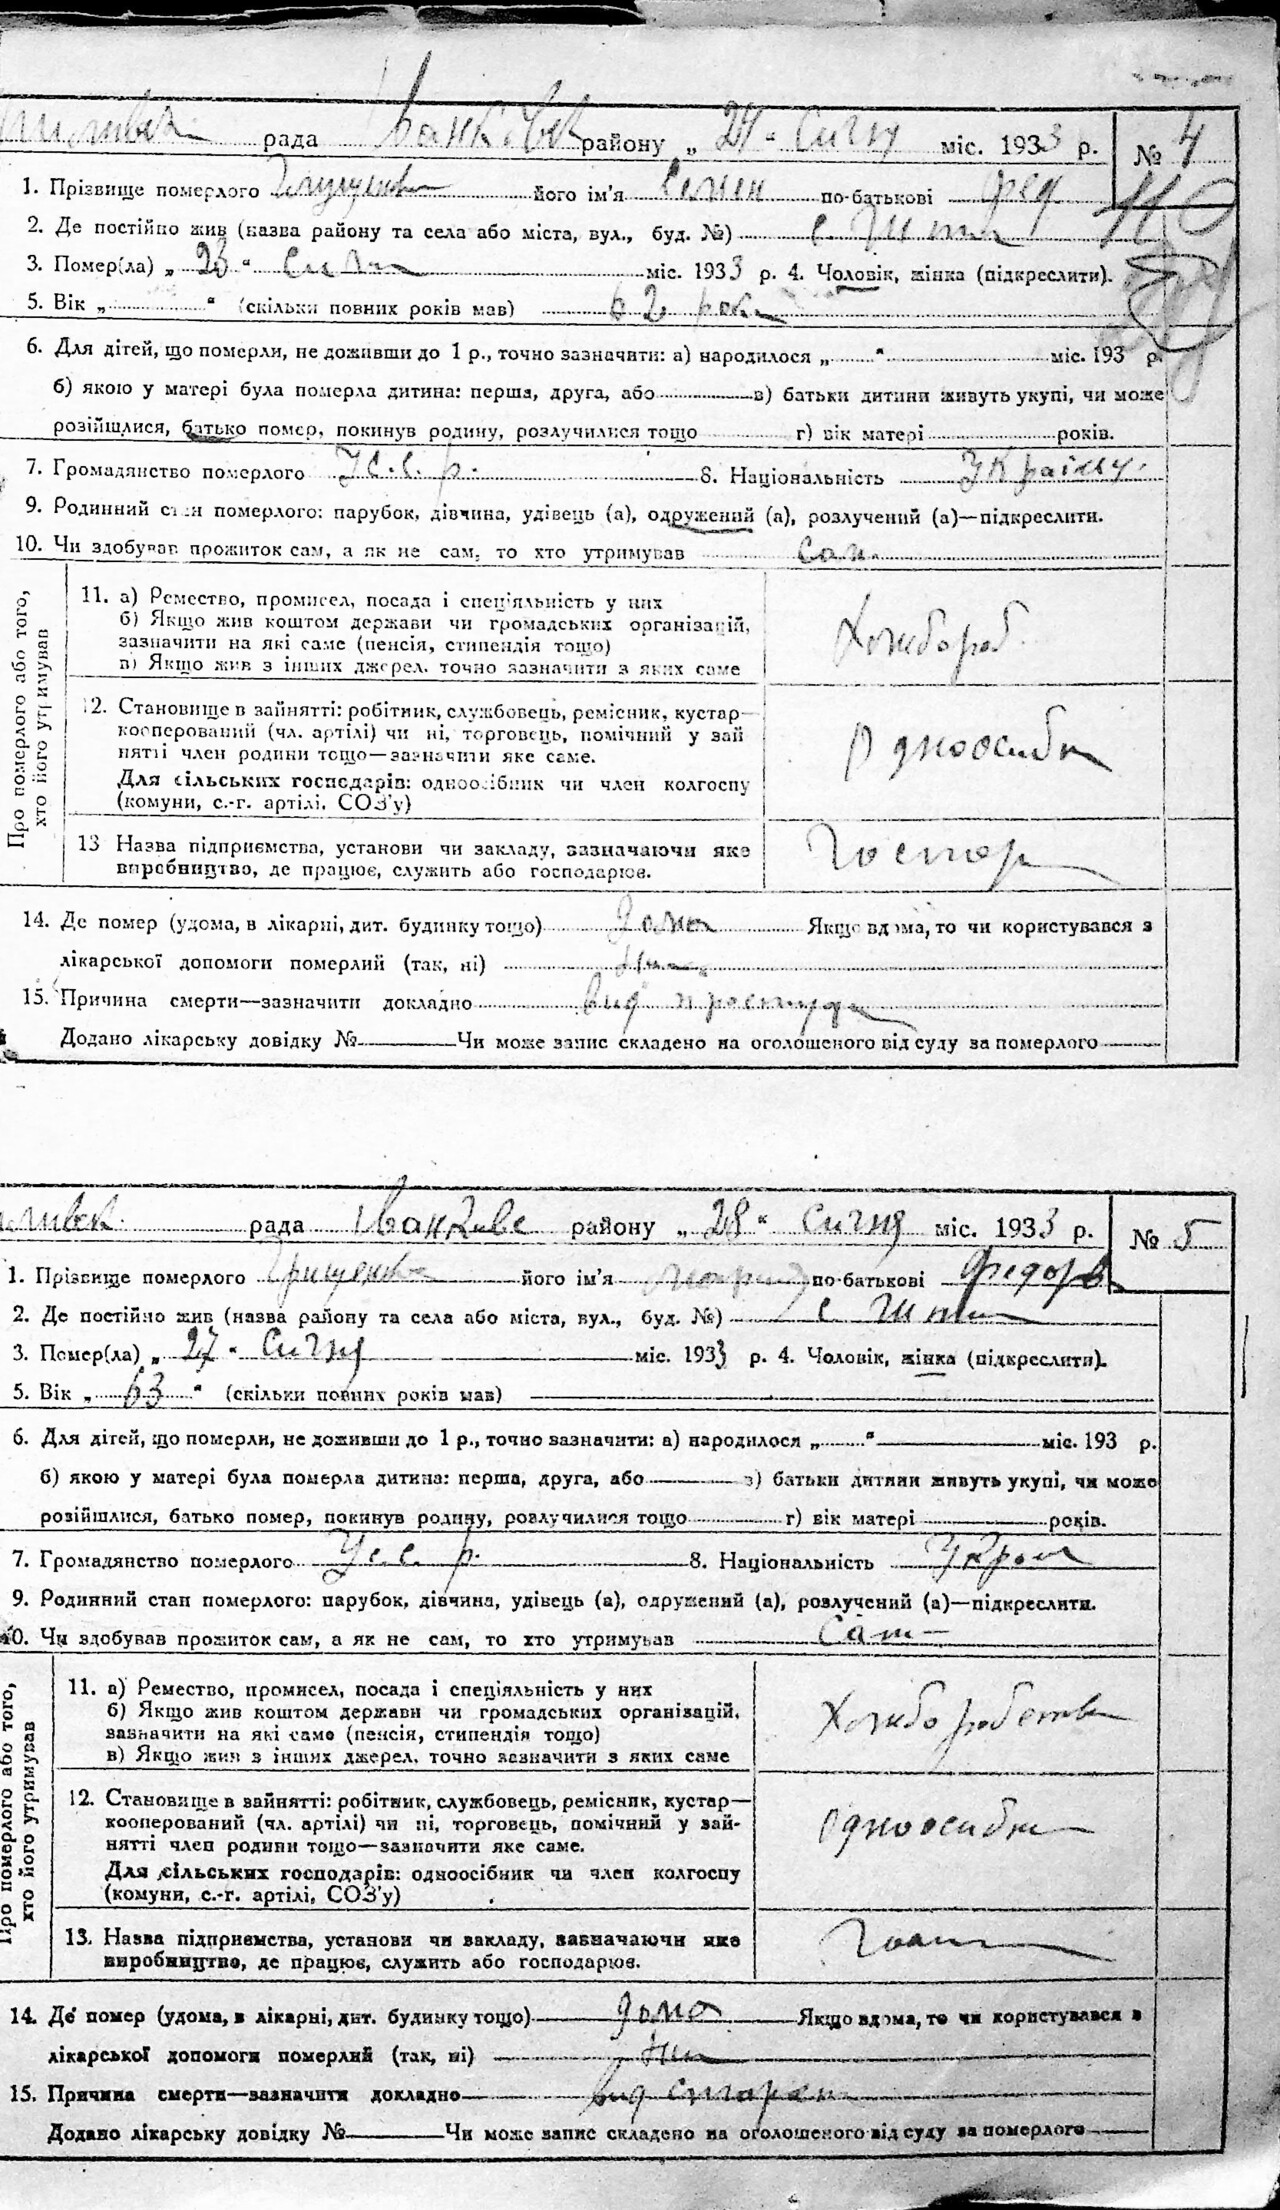 рада Іванковс району „ 24 " Сичня міс. 1933 р. № 4
1. Прізвище померлого його ім'я Семен по-батькові Фед
110
2. Де постійно жив (назва району та села або міста, вул., буд. №) с.
3. Помер(ла) „ 23 " Сичн міс. 1933 р. 4. Чоловік, жінка (підкреслити).
5. Вік „ " (скільки повних років мав) 62 роки
6. Для дітей, що померли, не доживши до 1 р., точно зазначити: а) народилося „ " міс. 193 р.
б) якою у матері була померла дитина: перша, друга, або в) батьки дитини живуть укупі, чи може
розійшлися, батько помер, покинув родину, розлучилися тощо г) вік матері років.
7. Громадянство померлого У.С.С.р. 8. Національність Україну.
9. Родинний стан померлого: парубок, дівчина, удівець (а), одружений (а), розлучений (а)—підкреслити.
10. Чи здобував прожиток сам, а як не сам, то хто утримував Сам.
Про померлого або того,
хто його утримував
11. а) Ремество, промисел, посада і спеціяльність у них
б) Якщо жив коштом держави чи громадських організацій,
зазначити на які саме (пенсія, стипендія тощо)
в) Якщо жив з інших джерел, точно зазначити з яких саме
Хлибороб
12. Становище в зайнятті: робітник, службовець, ремісник, кустар—
кооперований (чл. артілі) чи ні, торговець, помічний у зай
нятті член родини тощо—зазначити яке саме.
Для сільських господарів: одноосібник чи член колгоспу
(комуни, с.-г. артілі, СОЗ'у)
Одноосибн
13 Назва підприємства, установи чи закладу, зазначаючи яке
виробництво, де працює, служить або господарює.
Госпор
14. Де помер (удома, в лікарні, дит. будинку тощо) Дома Якщо вдома, то чи користувався з
лікарської допомоги померлий (так, ні) Ни
15. Причина смерти—зазначити докладно вид простуди
Додано лікарську довідку № Чи може запис складено на оголошеного від суду за померлого
рада Іванкивс району „ 28 " Сичня міс. 1933 р. № 5
1. Прізвище померлого Грищенко його ім'я по-батькові Федоров
2. Де постійно жив (назва району та села або міста, вул., буд. №) с.
3. Помер(ла) „ 27 " Сичня міс. 1933 р. 4. Чоловік, жінка (підкреслити).
5. Вік „ 63 " (скільки повних років мав)
6. Для дітей, що померли, не доживши до 1 р., точно зазначити: а) народилося „ " міс. 193 р.
б) якою у матері була померла дитина: перша, друга, або в) батьки дитини живуть укупі, чи може
розійшлися, батько помер, покинув родину, розлучилися тощо г) вік матері років.
7. Громадянство померлого У.с.с.р. 8. Національність Україн
9. Родинний стан померлого: парубок, дівчина, удівець (а), одружений (а), розлучений (а)—підкреслити.
10. Чи здобував прожиток сам, а як не сам, то хто утримував Сам
Про померлого або того,
хто його утримував
11. а) Ремество, промисел, посада і спеціяльність у них
б) Якщо жив коштом держави чи громадських організацій,
зазначити на які саме (пенсія, стипендія тощо)
в) Якщо жив з інших джерел, точно зазначити з яких саме
Хлиборобств
12. Становище в зайнятті: робітник, службовець, ремісник, кустар—
кооперований (чл. артілі) чи ні, торговець, помічний у зай-
нятті член родини тощо—зазначити яке саме.
Для сільських господарів: одноосібник чи член колгоспу
(комуни, с.-г. артілі, СОЗ'у)
одноосибн
13. Назва підприємства, установи чи закладу, зазначаючи яке
виробництво, де працює, служить або господарює.
14. Де помер (удома, в лікарні, дит. будинку тощо) Дома Якщо вдома, то чи користувався з
лікарської допомоги померлий (так, ні) Ни
15. Причина смерти—зазначити докладно вид старост
Додано лікарську довідку № Чи може запис складено на оголошеного від суду за померлого